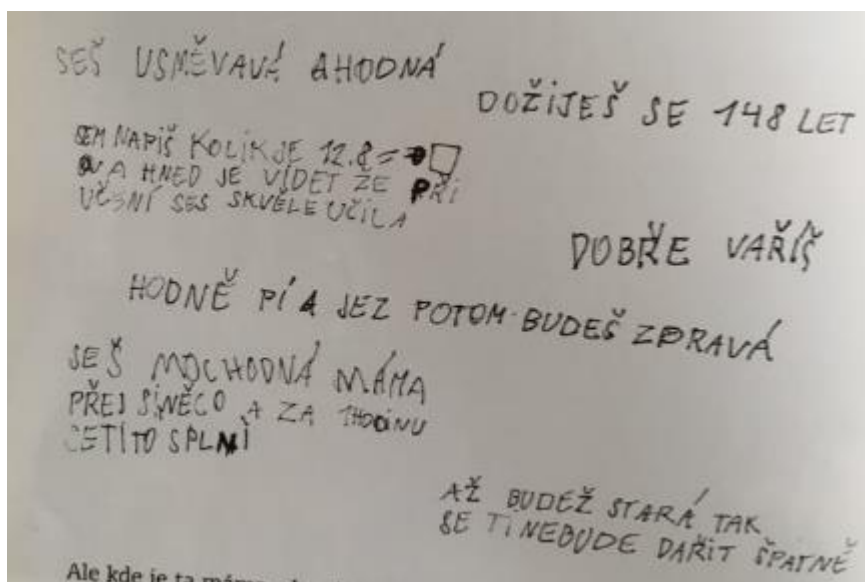 SEŠ USMĚVAVÁ A HODNÁ
DOŽIJEŠ SE 148 LET
SEM NAPIŠ KOLIK JE 12.8=
A HNED JE VIDET ŽE PŘI
UČENÍ SES SKVĚLE UČILA
DOBŘE VAŘÍŠ
HODNĚ PÍ A JEZ POTOM BUDEŠ ZDRAVÁ
SEŠ MOC HODNÁ MÁMA
PŘEJ SI NĚCO A ZA 1 HODINU
SE TI TO SPLNÍ
AŽ BUDEŽ STARÁ TAK
SE TI NEBUDE DAŘIT ŠPATNĚ
Ale kde je ta